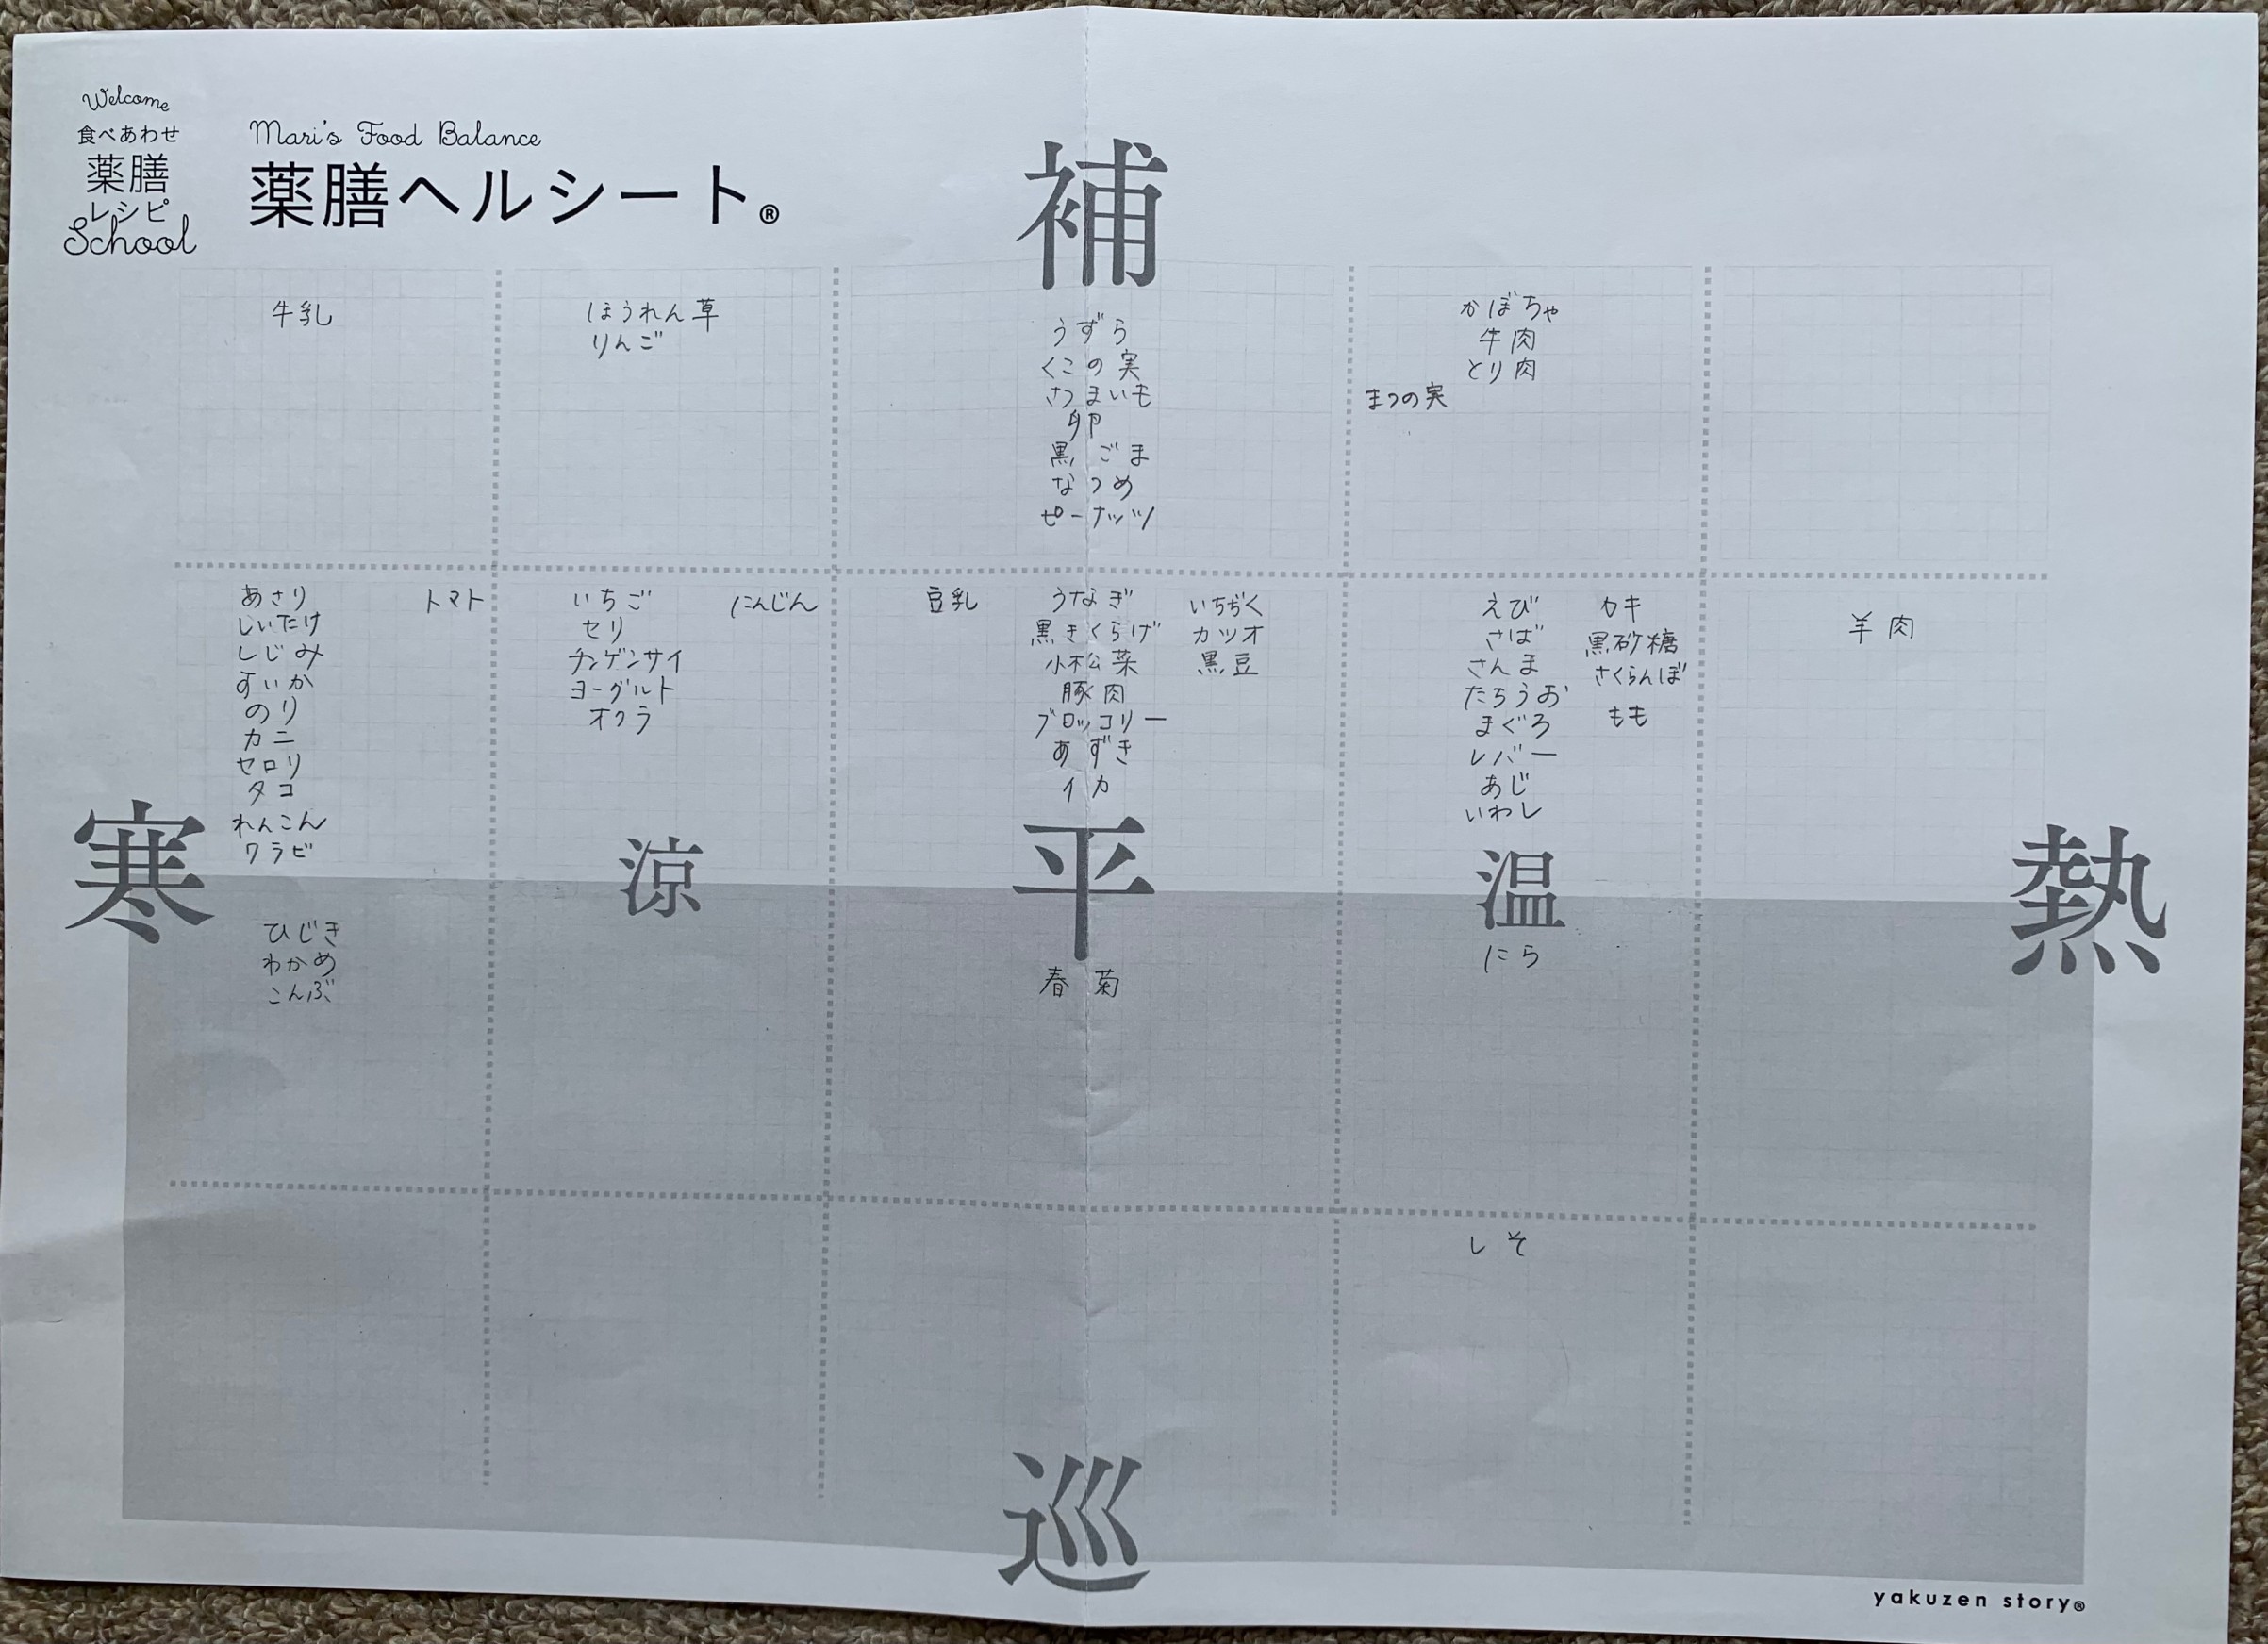 Welcome
食べあわせ
薬膳
レシピ
School
Mari's Food Balance
薬膳ヘルシート®
補
牛乳
ほうれん草
りんご
うずら
くこの実
さつまいも
卵
黒ごま
なつめ
ピーナッツ
かぼちゃ
牛肉
とり肉
まつの実
あさり
しいたけ
しじみ
すいか
のり
カニ
セロリ
タコ
れんこん
ワラビ
トマト
いちご
セリ
チンゲンサイ
ヨーグルト
オクラ
にんじん
豆乳
うなぎ
黒きくらげ
小松菜
豚肉
ブロッコリー
あずき
イカ
いちぢく
カツオ
黒豆
えび
さば
さんま
たちうお
まぐろ
レバー
あじ
いわし
カキ
黒砂糖
さくらんぼ
もも
羊肉
寒
涼
平
温
熱
ひじき
わかめ
こんぶ
春菊
にら
しそ
巡
yakuzen story®